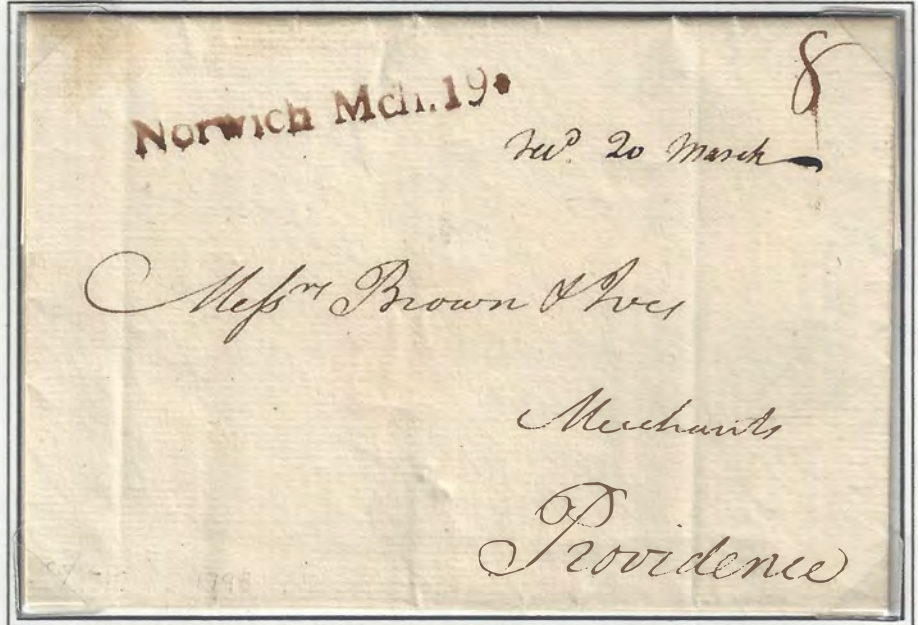 Norwich Mch. 19
8
Recd. 20 March
Messrs Brown & Ives
Merchants
Providence